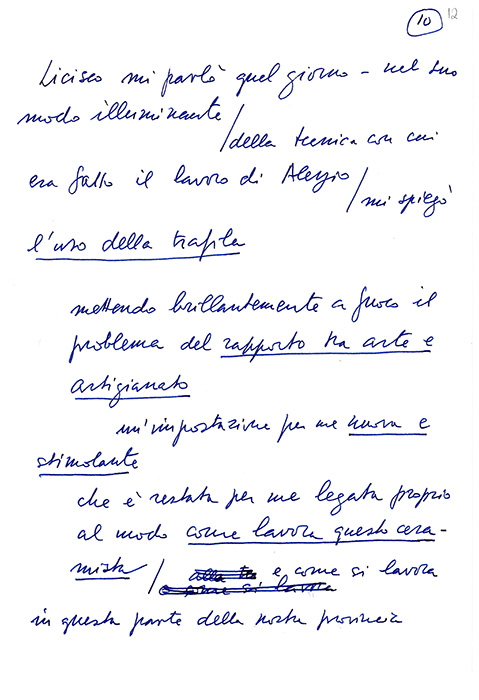 10 12
Licisco mi parlò quel giorno - nel suo
modo illuminante
/ della tecnica con cui
era fatto il lavoro di Alessio
/ mi spiegò
l'uso della trafila
mettendo brillantemente a fuoco il
problema del rapporto tra arte e
artigianato
un'impostazione per me nuova e
stimolante
che è restata per me legata proprio
al modo come lavora questo cera-
mista / e come si lavora
e come si lavora
in questa parte della nostra provincia